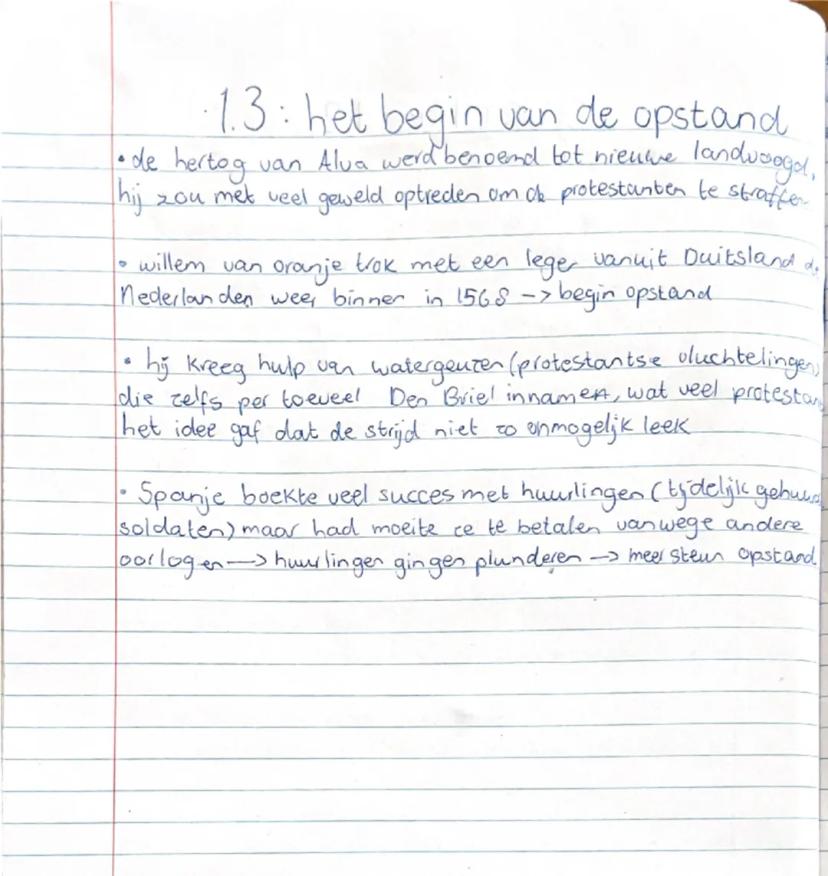 1.3: het begin van de opstand
• de hertog van Alva werd benoemd tot nieuwe landvoogd,
hij zou met veel geweld optreden om de protestanten te straffen
• willem van oranje trok met een leger vanuit Duitsland de
Nederlanden weer binnen in 1568 -> begin opstand
• hij kreeg hulp van watergeuzen (protestantse vluchtelingen)
die zelfs per toeveel Den Briel innamen, wat veel protestan
het idee gaf dat de strijd niet zo onmogelijk leek
• Spanje boekte veel succes met huurlingen (tijdelijk gehuurd
soldaten) maar had moeite ze te betalen vanwege andere
oorlogen -> huurlingen gingen plunderen -> meer steun opstand